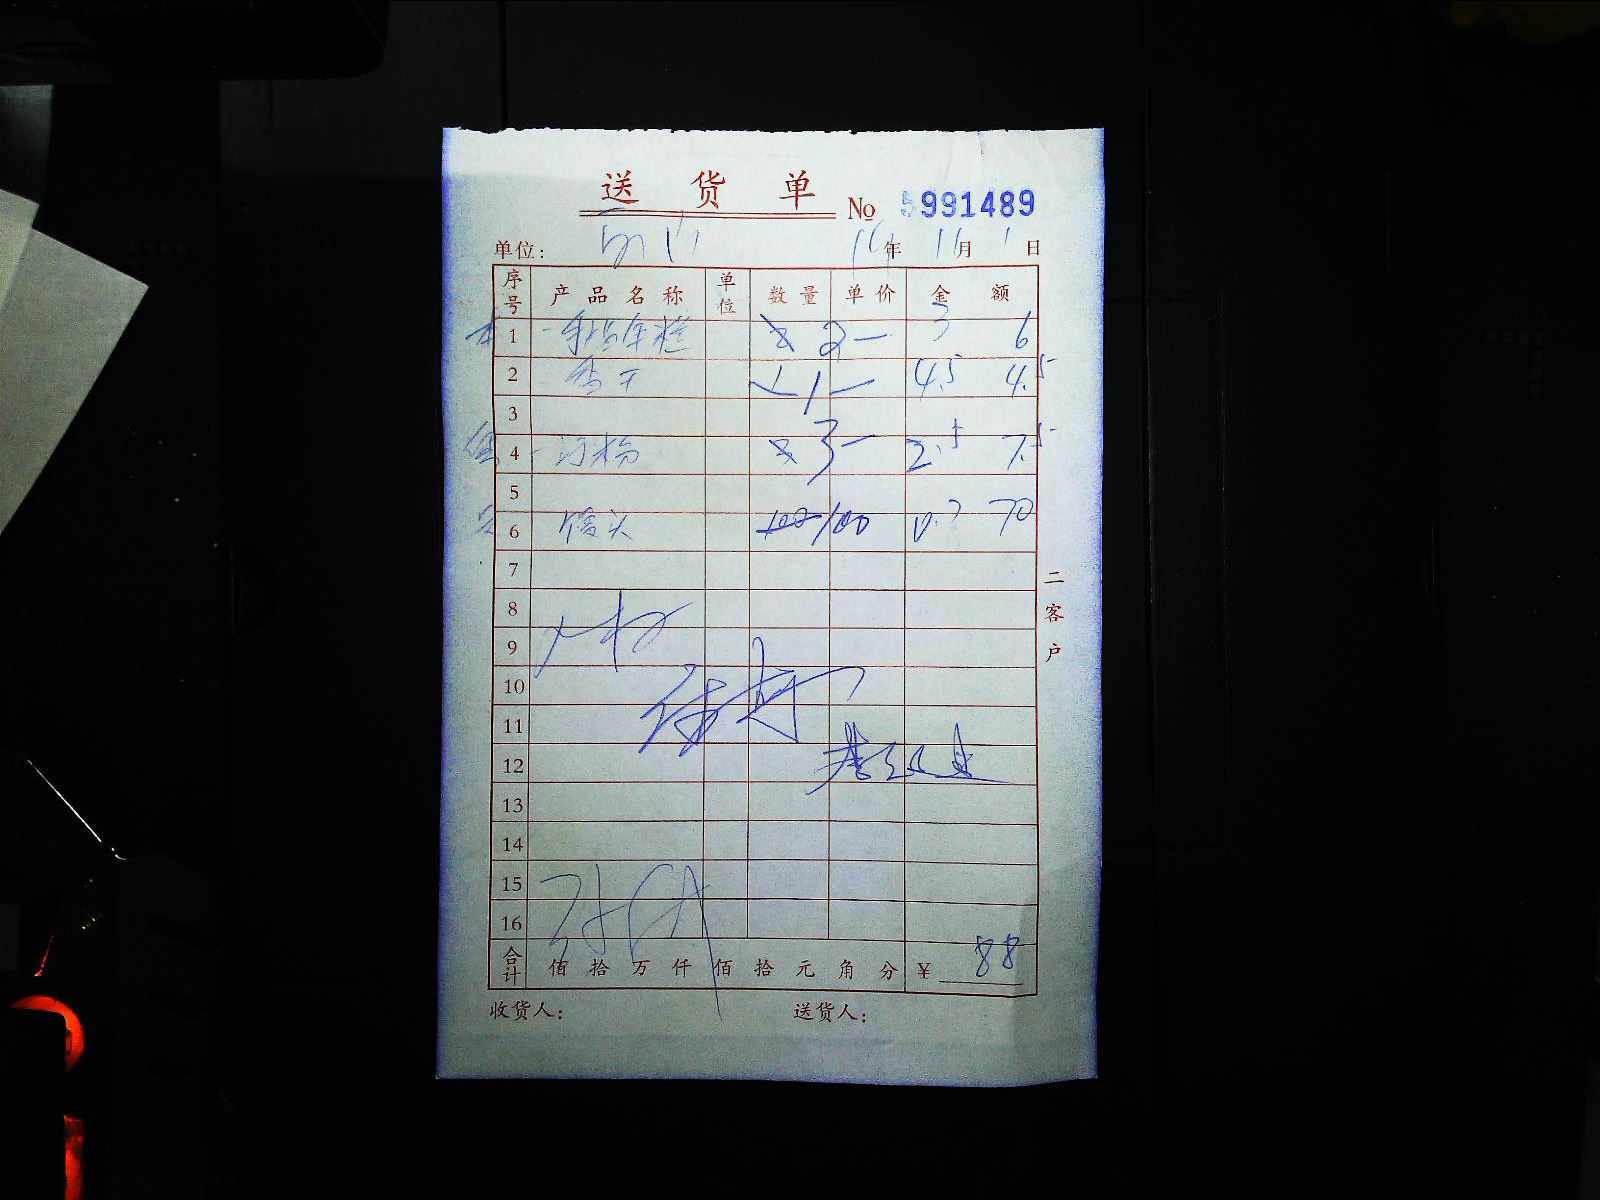 送货单 No 5991489
单位: 年 11月 1日
序号 产品名称 单位 数量 单价 金额
1 手指年糕 2 3 6
2 香干 1 4.5 4.5
3
4 汀粉 3 2.5 7.5
5
6 馒头 100 100 0.7 70
7
8
9
10
11
12
13
14
15
16
合计 佰拾万仟佰拾元角分 ¥ 88
收货人: 送货人:
二客户